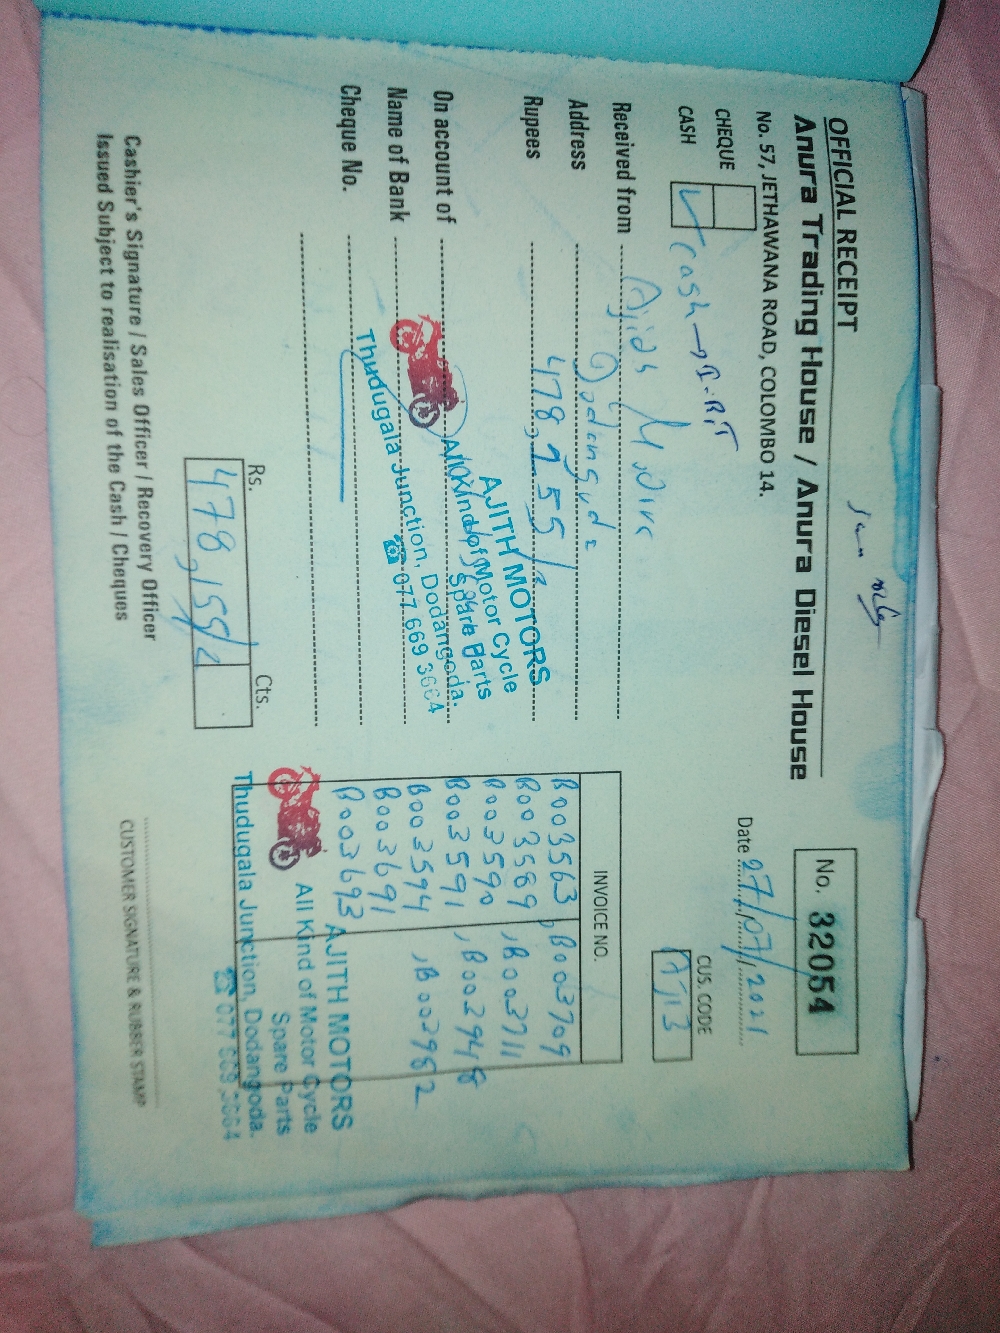 OFFICIAL RECEIPT
Anura Trading House / Anura Diesel House
No. 57, JETHAWANA ROAD, COLOMBO 14.
No. 32054
Date 27/07/2021
CHEQUE
CASH
Cash →
CUS. CODE
Received from
Address
Rupees 478,955/=
On account of
Name of Bank
Cheque No.
AJITH MOTORS
All Kind of Motor Cycle
Spare Parts
Thudugala Junction, Dodangoda.
☎ 077 669 3664
INVOICE NO.
B003563, B003709
B003589, B003711
B003590
B003591, B002948
B003594, B003982
B003691
B003693
AJITH MOTORS
All Kind of Motor Cycle
Spare Parts
Thudugala Junction, Dodangoda.
☎ 077 669 3664
Rs. Cts.
478,155/=
Cashier's Signature / Sales Officer / Recovery Officer
Issued Subject to realisation of the Cash / Cheques
CUSTOMER SIGNATURE & RUBBER STAMP